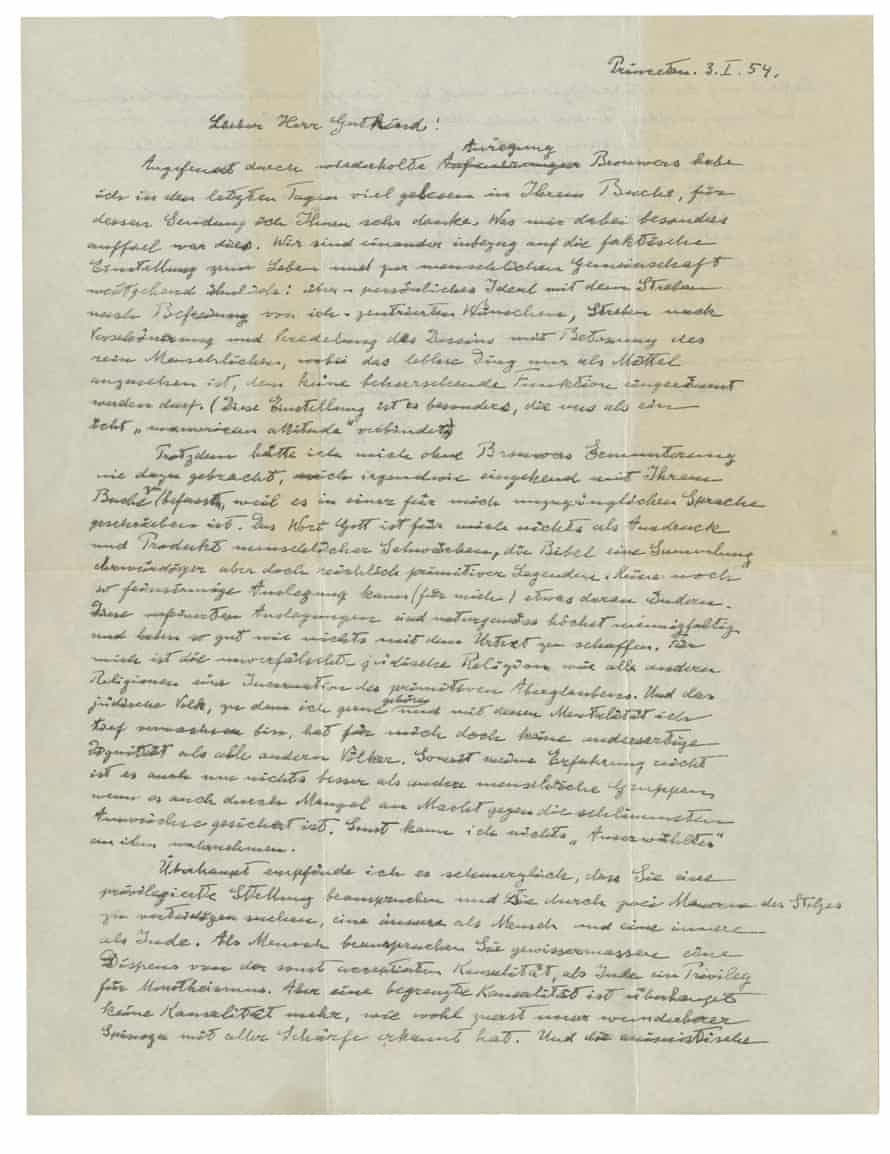 Princeton. 3. I. 54.
Lieber Herr Gutkind!
Anregung
Angefeuert durch wiederholte Brouwers habe
ich in den letzten Tagen viel gelesen in Ihrem Buche, für
dessen Sendung ich Ihnen sehr danke. Was mir dabei besonders
auffiel war dies. Wir sind einander inbezug auf die faktische
Einstellung zum Leben und zur menschlichen Gemeinschaft
weitgehend ähnlich: über-persönliches Ideal mit dem Streben
nach Befreiung von ich-zentrierten Wünschen, Streben nach
Verschönerung und Veredelung des Daseins mit Betonung des
rein Menschlichen, wobei das leblose Ding nur als Mittel
anzusehen ist, dem keine beherrschende Funktion eingeräumt
werden darf. (Diese Einstellung ist es besonders, die uns als ein
ächt „unamerican attitude" verbindet)
Trotzdem hätte ich mich ohne Brouwers Ermunterung
nie dazu gebracht, mich irgendwie eingehend mit Ihrem
Buche zu befassen, weil es in einer für mich unzugänglichen Sprache
geschrieben ist. Das Wort Gott ist für mich nichts als Ausdruck
und Produkt menschlicher Schwächen, die Bibel eine Sammlung
ehrwürdiger aber doch reichlich primitiver Legenden. Keine noch
so feinsinnige Auslegung kann (für mich) etwas daran ändern.
Diese verfeinerten Auslegungen sind naturgemäss höchst mannigfaltig
und haben so gut wie nichts mit dem Urtext zu schaffen. Für
mich ist die unverfälschte jüdische Religion wie alle anderen
Religionen eine Incarnation des primitiven Aberglaubens. Und das
jüdische Volk, zu dem ich gerne gehöre und mit dessen Mentalität ich
tief verwachsen bin, hat für mich doch keine andersartige
Dignität als alle andern Völker. Soweit meine Erfahrung reicht
ist es auch um nichts besser als andere menschliche Gruppen
wenn es auch durch Mangel an Macht gegen die schlimmsten
Auswüchse gesichert ist. Sonst kann ich nichts „Auserwähltes"
an ihm wahrnehmen.
Überhaupt empfinde ich es schmerzlich, dass Sie eine
privilegierte Stellung beanspruchen und Sie durch zwei Mauern des Stolzes
zu verteidigen suchen, eine äussere als Mensch und eine innere
als Jude. Als Mensch beanspruchen Sie gewissermassen einen
Dispens von der sonst acceptierten Kausalität, als Jude ein Privileg
für Monotheismus. Aber eine begrenzte Kausalität ist überhaupt
keine Kausalität mehr, wie wohl zuerst unser wunderbarer
Spinoza mit aller Schärfe erkannt hat. Und die animistische